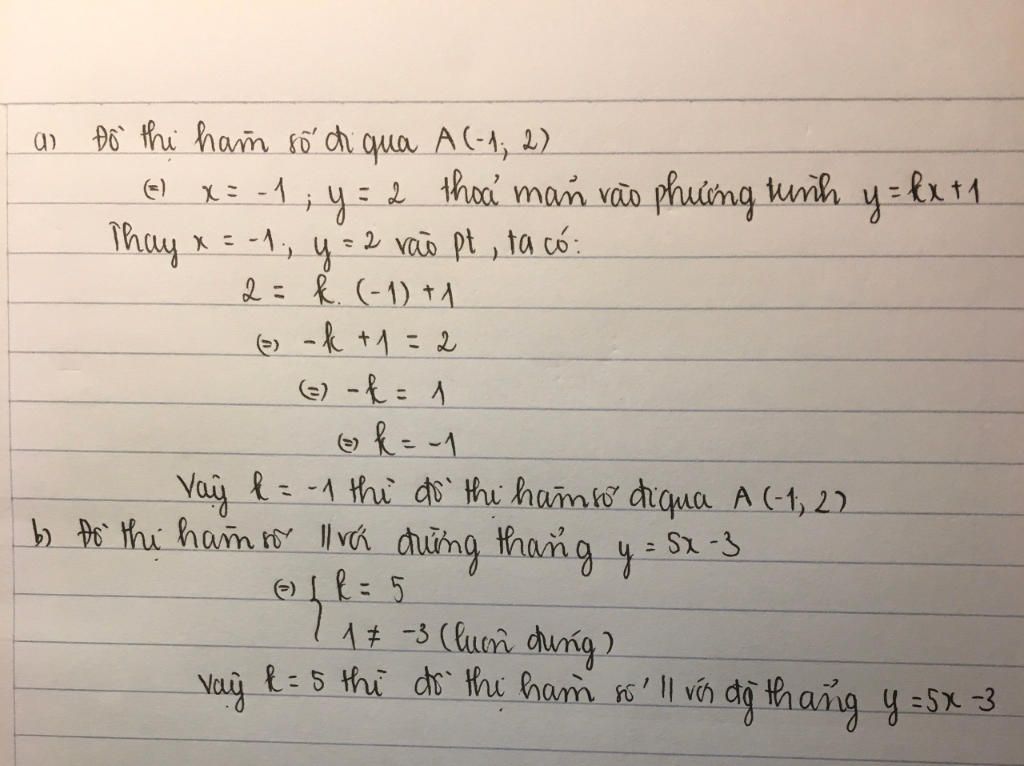 a) Đồ thị hàm số đi qua A(-1; 2)
(=) x = -1 ; y = 2 thoả mãn vào phương trình y = kx + 1
Thay x = -1 ; y = 2 vào pt , ta có :
2 = k. (-1) + 1
(=) -k + 1 = 2
(=) -k = 1
(=) k = -1
Vậy k = -1 thì đồ thị hàm số đi qua A (-1; 2)
b) Đồ thị hàm số // với đường thẳng y = 5x - 3
(=) { k = 5
1 ≠ -3 (luôn đúng)
Vậy k = 5 thì đồ thị hàm số // với đg̀ thẳng y = 5x - 3